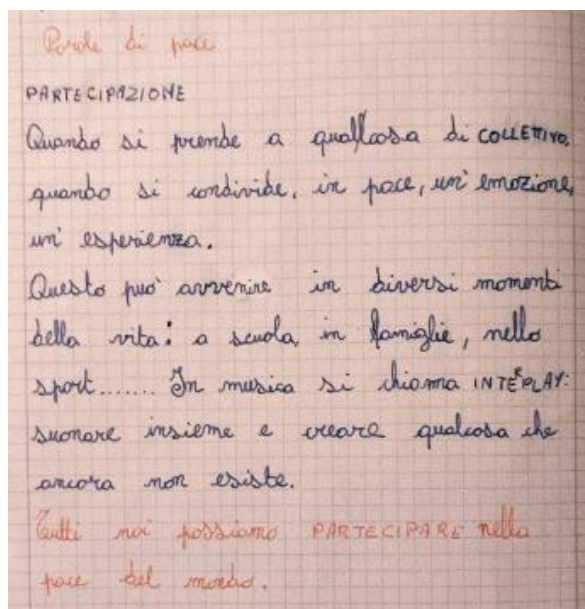 Parole di pace
PARTECIPAZIONE
Quando si prende a quallcosa di COLLETTIVO,
quando si condivide, in pace, un' emozione,
un' esperienza.
Questo può avvenire in diversi momenti
della vita: a scuola, in famiglie, nello
sport....... In musica si chiama INTERPLAY:
suonare insieme e creare qualcosa che
ancora non esiste.
Tutti noi possiamo PARTECIPARE nella
pace del mondo.